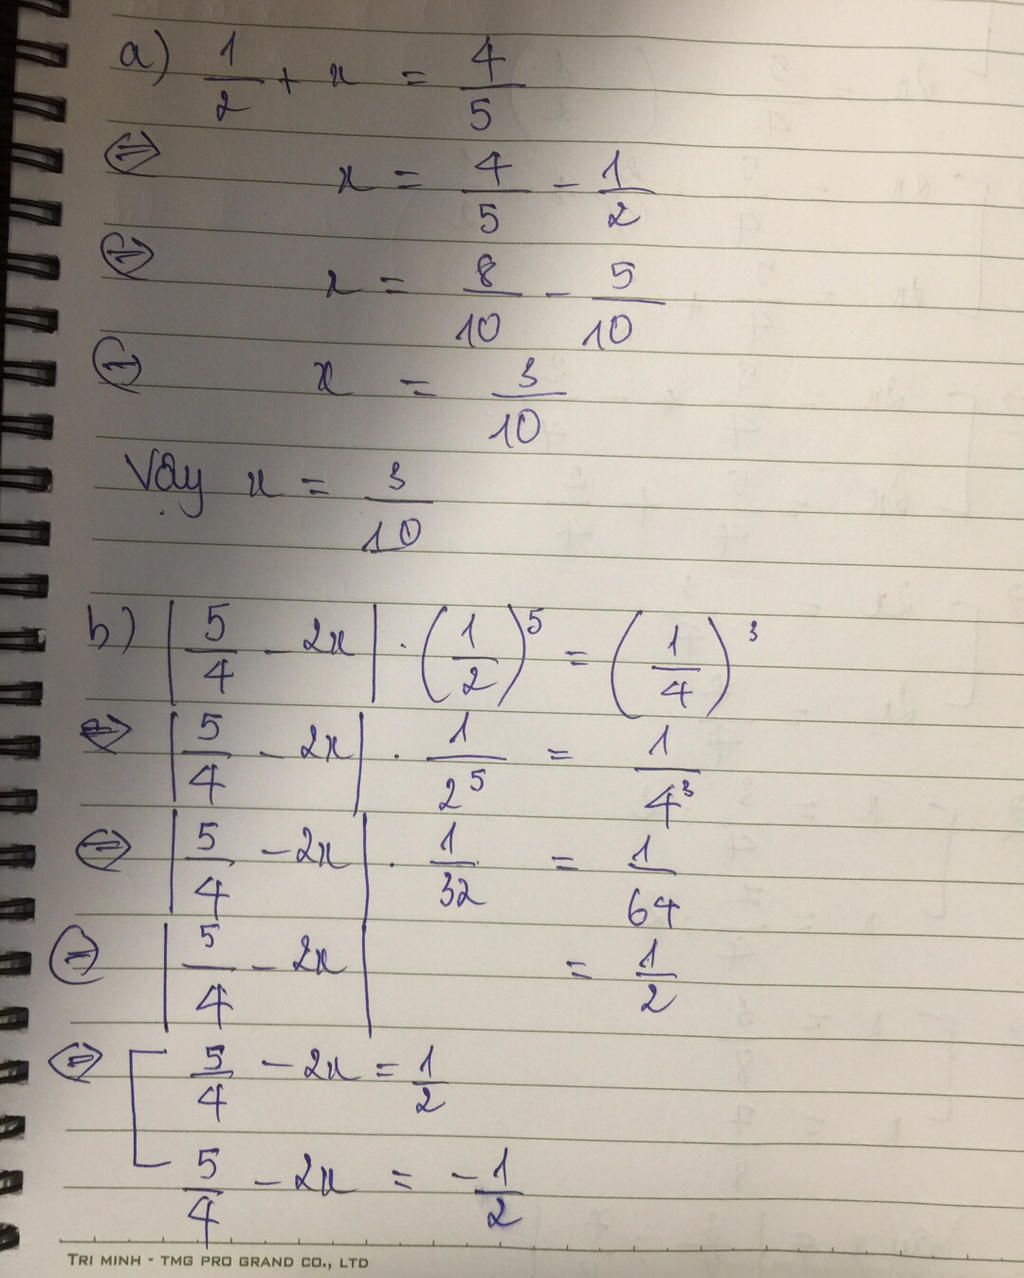 a) 1/2 + x = 4/5
⇔ x = 4/5 - 1/2
⇔ x = 8/10 - 5/10
⇔ x = 3/10
Vậy x = 3/10
b) |5/4 - 2x| . (1/2)^5 = (1/4)^3
⇔ |5/4 - 2x| . 1/2^5 = 1/4^3
⇔ |5/4 - 2x| . 1/32 = 1/64
⇔ |5/4 - 2x| = 1/2
⇔ [ 5/4 - 2x = 1/2
5/4 - 2x = -1/2
TRI MINH - TMG PRO GRAND CO., LTD